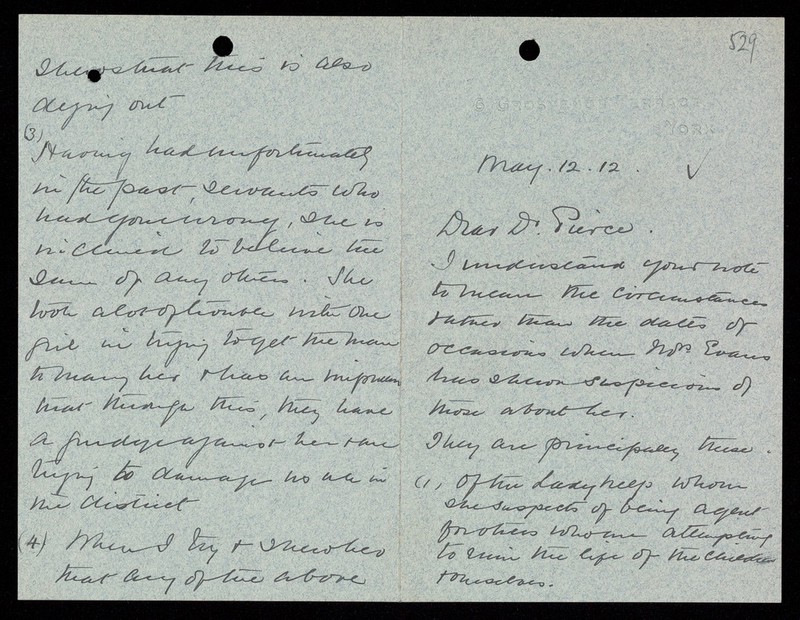 529
6 GROSVENOR TERRACE,
YORK.
May. 12. 12.
Dear Dr. Pierce.
I understand your note
to mean the circumstances
rather than the dates of
occasions when Mrs Evans
has shewn suspicions of
those about her.
They are principally these.
(1) Of the Lady help whom
she suspects of being agent
for others who are attempting
to ruin the life of the children
& ourselves.
I hope that this is also
dying out
(3)
Having had unfortunately
in the past, servants who
had gone wrong, she is
inclined to believe the
same of any others. She
took a lot of trouble with one
girl in trying to get the man
to marry her & has an impression
that through this, they have
a grudge against her & are
trying to damage us all in
the district
(4) When I try & shew her
that any of the above